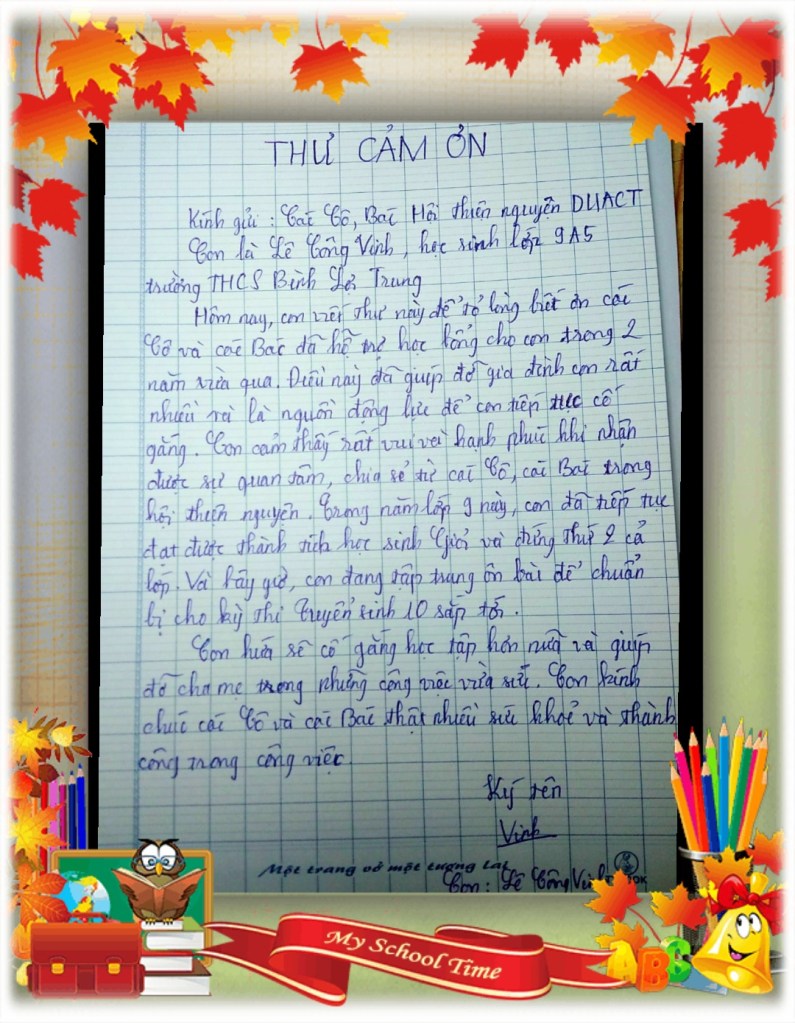 THƯ CẢM ƠN
Kính gửi : Các Cô, Bác Hội thiện nguyện DUACT
Con là Lê Công Vinh, học sinh lớp 9A5
trường THCS Bình Lợi Trung
Hôm nay, con viết thư này để tỏ lòng biết ơn các
Cô và các Bác đã hỗ trợ học bổng cho con trong 2
năm vừa qua. Điều này đã giúp đỡ gia đình con rất
nhiều và là nguồn động lực để con tiếp tục cố
gắng. Con cảm thấy rất vui và hạnh phúc khi nhận
được sự quan tâm, chia sẻ từ các Cô, các Bác trong
hội thiện nguyện. Trong năm lớp 9 này, con đã tiếp tục
đạt được thành tích học sinh Giỏi và đứng thứ 2 cả
lớp. Và bây giờ, con đang tập trung ôn bài để chuẩn
bị cho kỳ thi tuyển sinh 10 sắp tới.
Con hứa sẽ cố gắng học tập hơn nữa và giúp
đỡ cha mẹ trong những công việc vừa sức. Con kính
chúc các Cô và các Bác thật nhiều sức khoẻ và thành
công trong công việc.
Ký tên
Vinh
Một trang vở một tương lai
Con : Lê Công Vinh
My School Time
ABC